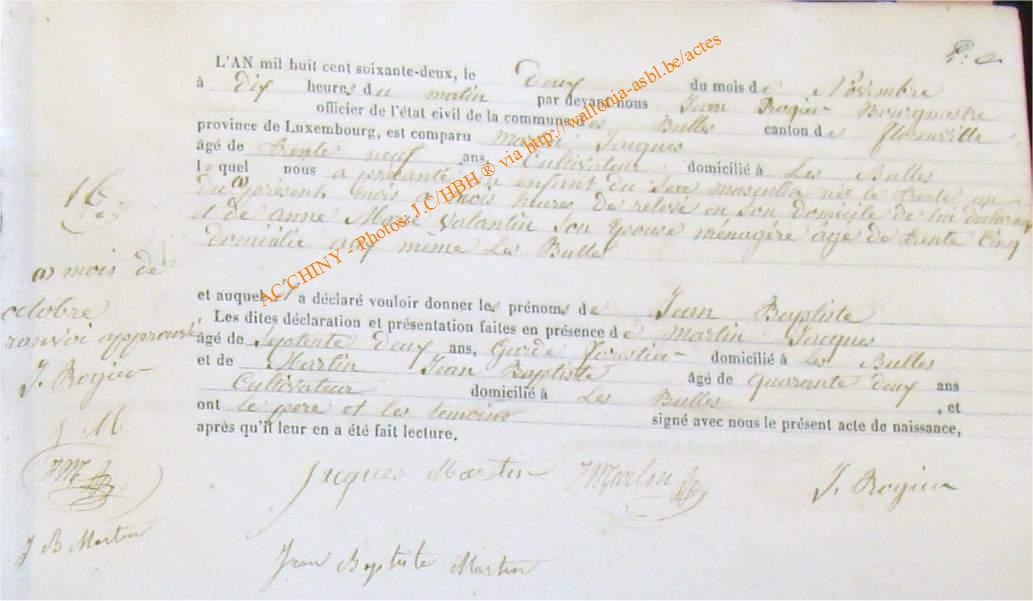 L'AN mil huit cent soixante-deux, le deux du mois de Novembre
à dix heures du matin par devant nous Jean Rogier Bourgmestre
officier de l'état civil de la commune des Bulles canton de florenville
province de Luxembourg, est comparu martin Jacques
âgé de trente neuf ans, Cultivateur domicilié à Les Bulles
lequel nous a présenté un enfant du sexe masculin née le trente un
du (a) présent mois a trois heures de relevé en son domicile de lui déclarant
et de anne Marie Valantin son épouse ménagère age de trente Cinq
domicilie même Les Bulles
et auquel il a déclaré vouloir donner les prénoms de Jean Baptiste
Les dites déclaration et présentation faites en présence de martin Jacques
âgé de Septente deux ans, Garde forestier domicilié à Les Bulles
et de Martin Jean Baptiste âgé de quarante deux ans
Cultivateur domicilié à Les Bulles , et
ont le pere et les temoins signé avec nous le présent acte de naissance,
après qu'il leur en a été fait lecture.
Jacques Martin
JMartin
J. Rogier
Jean Baptiste Martin
16
(a) mois de
octobre
renvoi approuvé
J. Rogier
J M
JM
J B Martin
AC CHINY - Photos: J.C/HBH ® via http://wallonia-asbl.be/actes